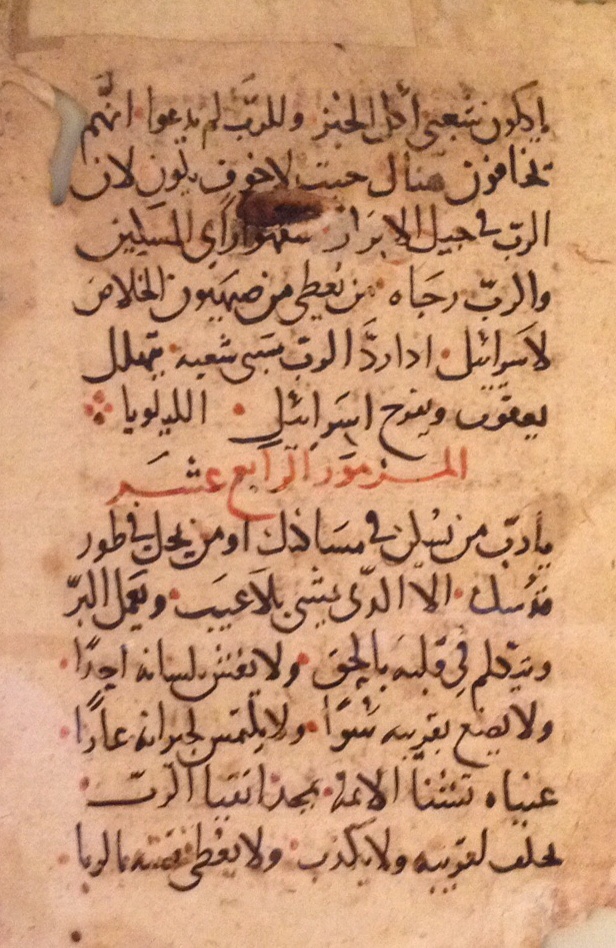 ياكلون شعبي أكل الخبز وللرب لم يدعوا انهم
يخافون هناك حيث لا خوف يكون لان
الرب في جيل الابرار راي المسكين
والرب رجاه من يعطي من صهيون الخلاص
لاسرائيل اذا ردَّ الرب سبي شعبه يتهلل
يعقوب ويفرح اسرائيل الليلويا
المزمور الرابع عشر
يارب من يسكن في مساكنك او من يحل في طور
قدسك الا الذي يمشي بلا عيب ويعمل البرّ
ويتكلم في قلبه بالحق ولا يغش بلسانه احدًا
ولا يصنع بقريبه سُوًا ولا يلتمس لجيرانه عارًا
عيناه تشنا الاثمه يمجد اتقيا الربّ
يحلف لقريبه ولا يكذب ولا يعطي فضته بالربا